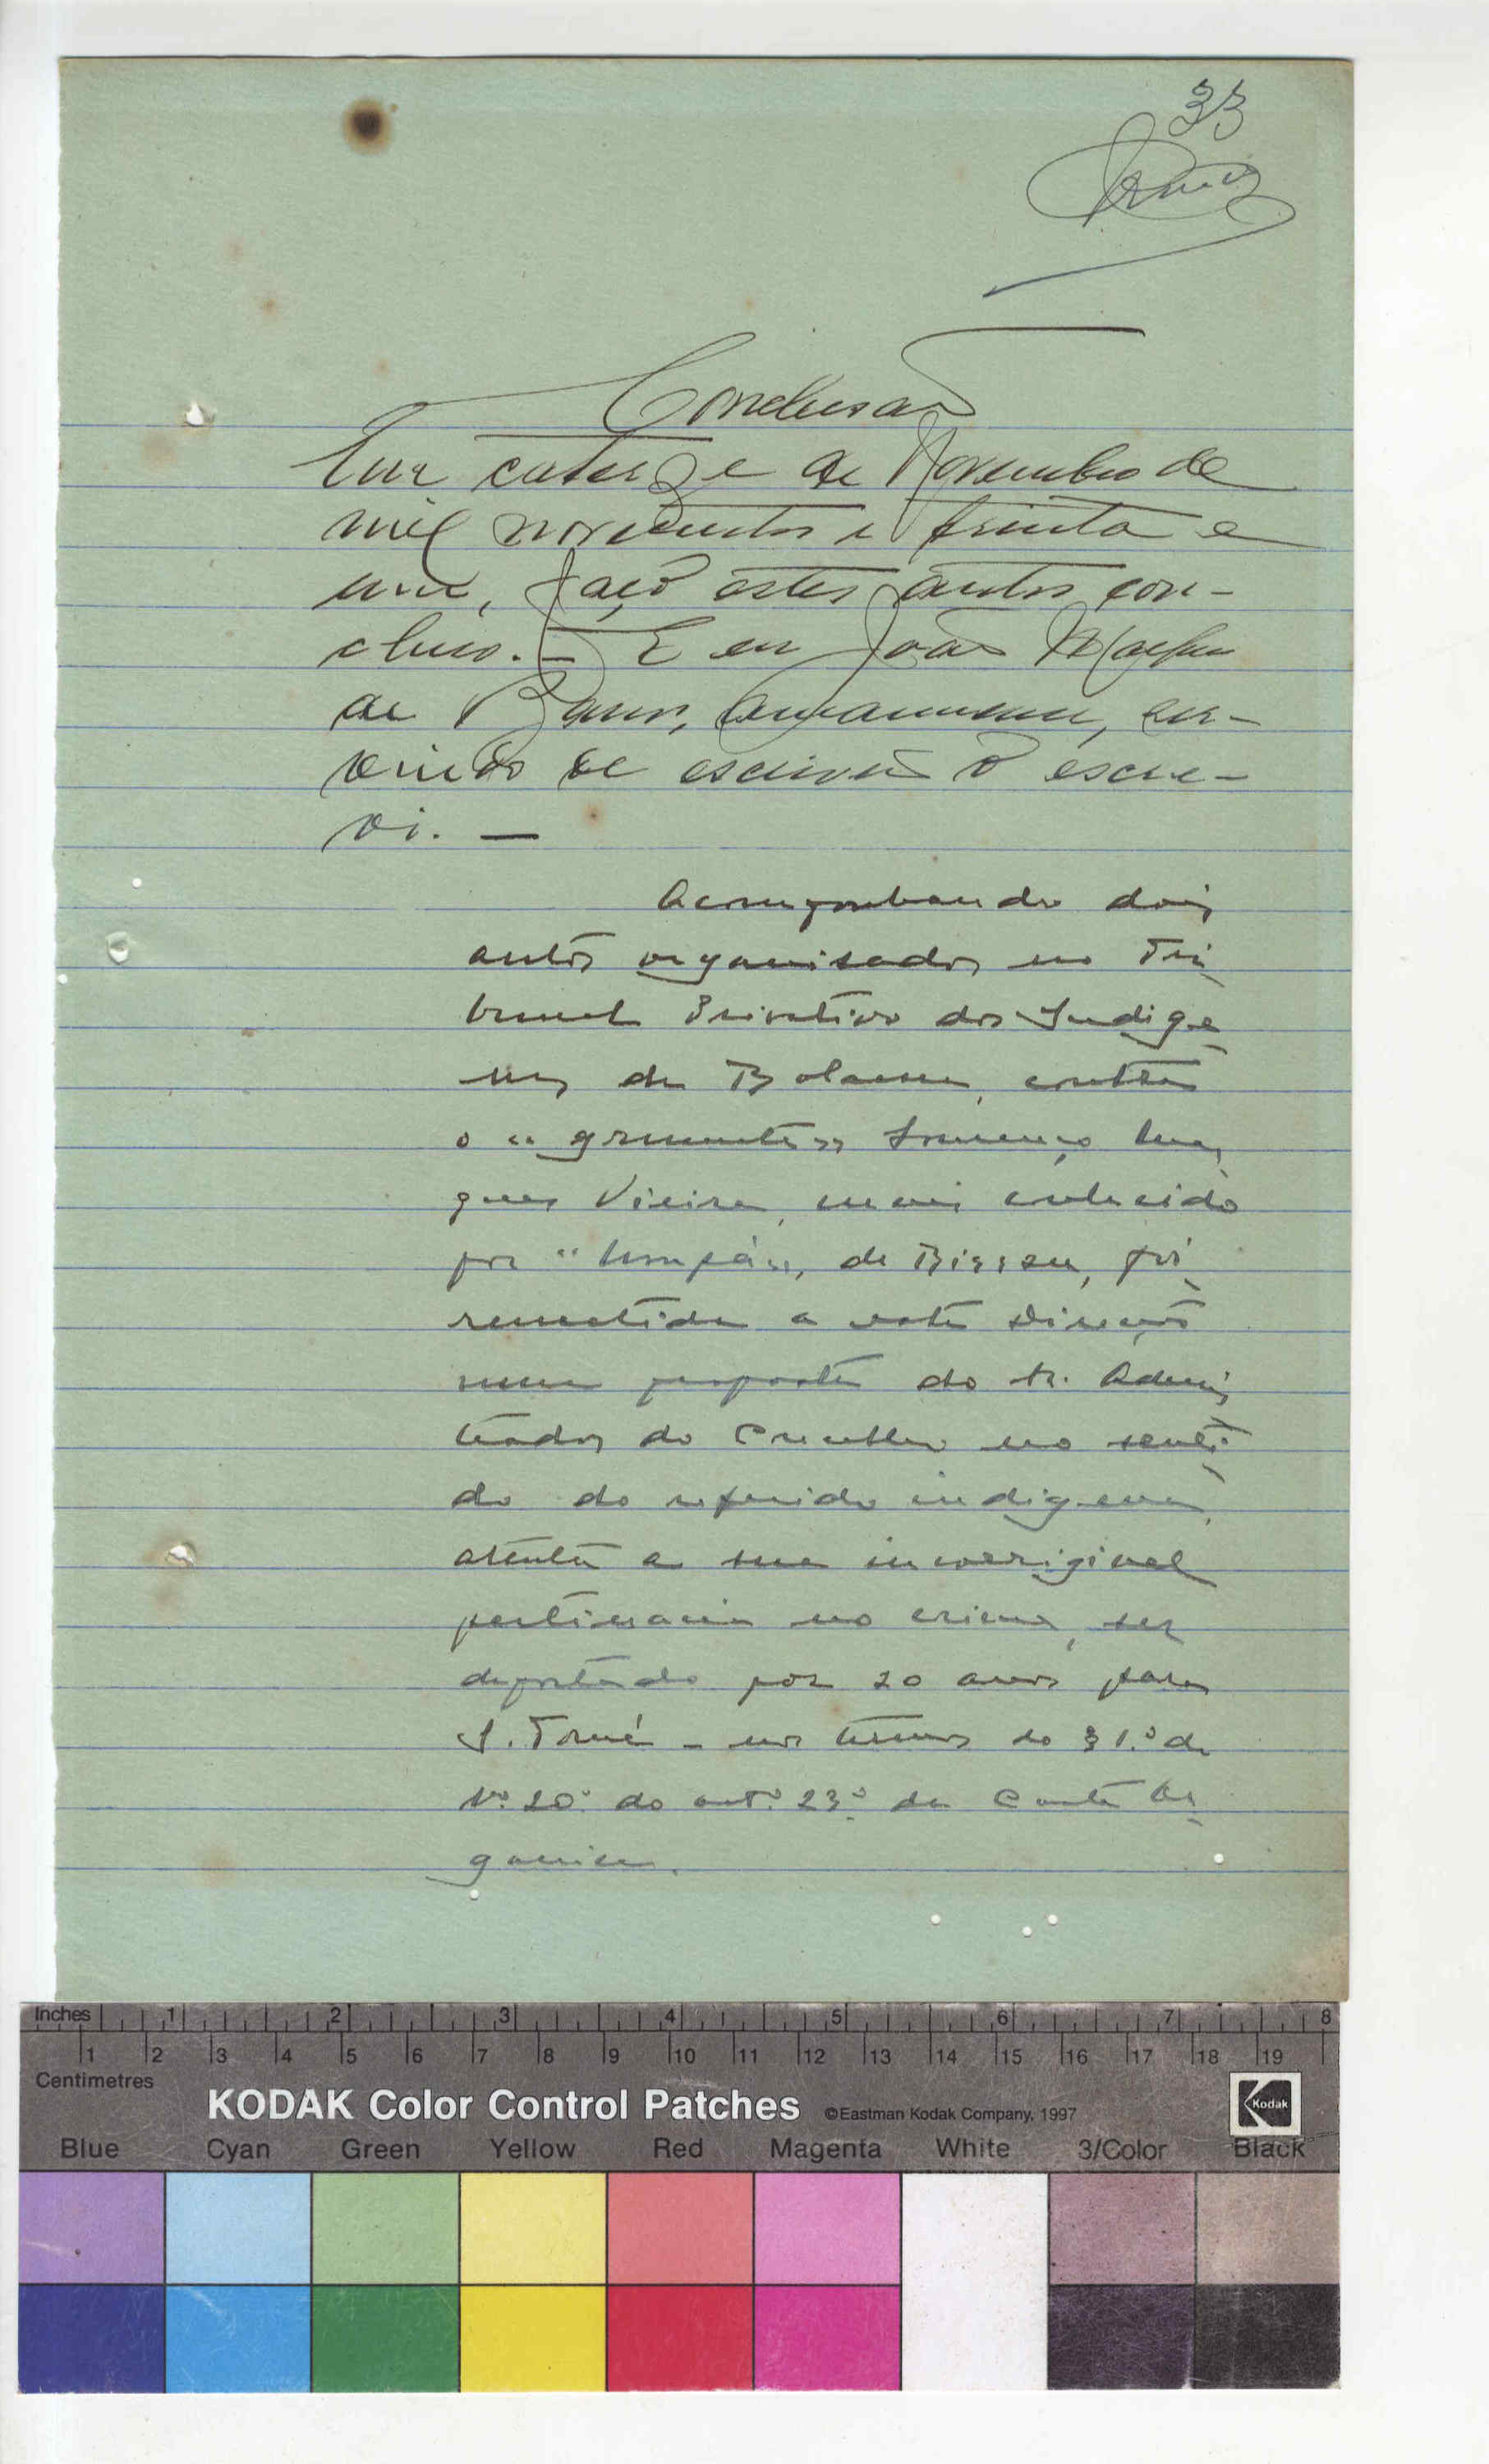 33
Conclusão
Em catorze de Novembro de
mil novecentos e trinta e
um, faço estes autos con-
clusos. – E eu João
de Barros, amanuense, ser-
vindo de escrivão o escre-
vi. —
Acompanhando dois
autos organisados no Tri
bunal Privativo dos Indige
nas de Bolama, contra
o "grumete" Lourenço Mar
ques Vieira, mais conhecido
por " de Bissau, foi
remetida a esta Direcção
uma proposta do Sr. Adminis
trador do Concelho no senti
do do referido indigena,
atenta a sua incorrigivel
pertinacia no crime, ser
deportado por 20 anos para
S. Tomé – nos termos do § 1.º do
Nº 20º do artº 23º da Carta Or
ganica.
Inches 1 2 3 4 5 6 7 8
1 2 3 4 5 6 7 8 9 10 11 12 13 14 15 16 17 18 19
Centimetres
KODAK Color Control Patches ©Eastman Kodak Company, 1997 Kodak
Blue Cyan Green Yellow Red Magenta White 3/Color Black